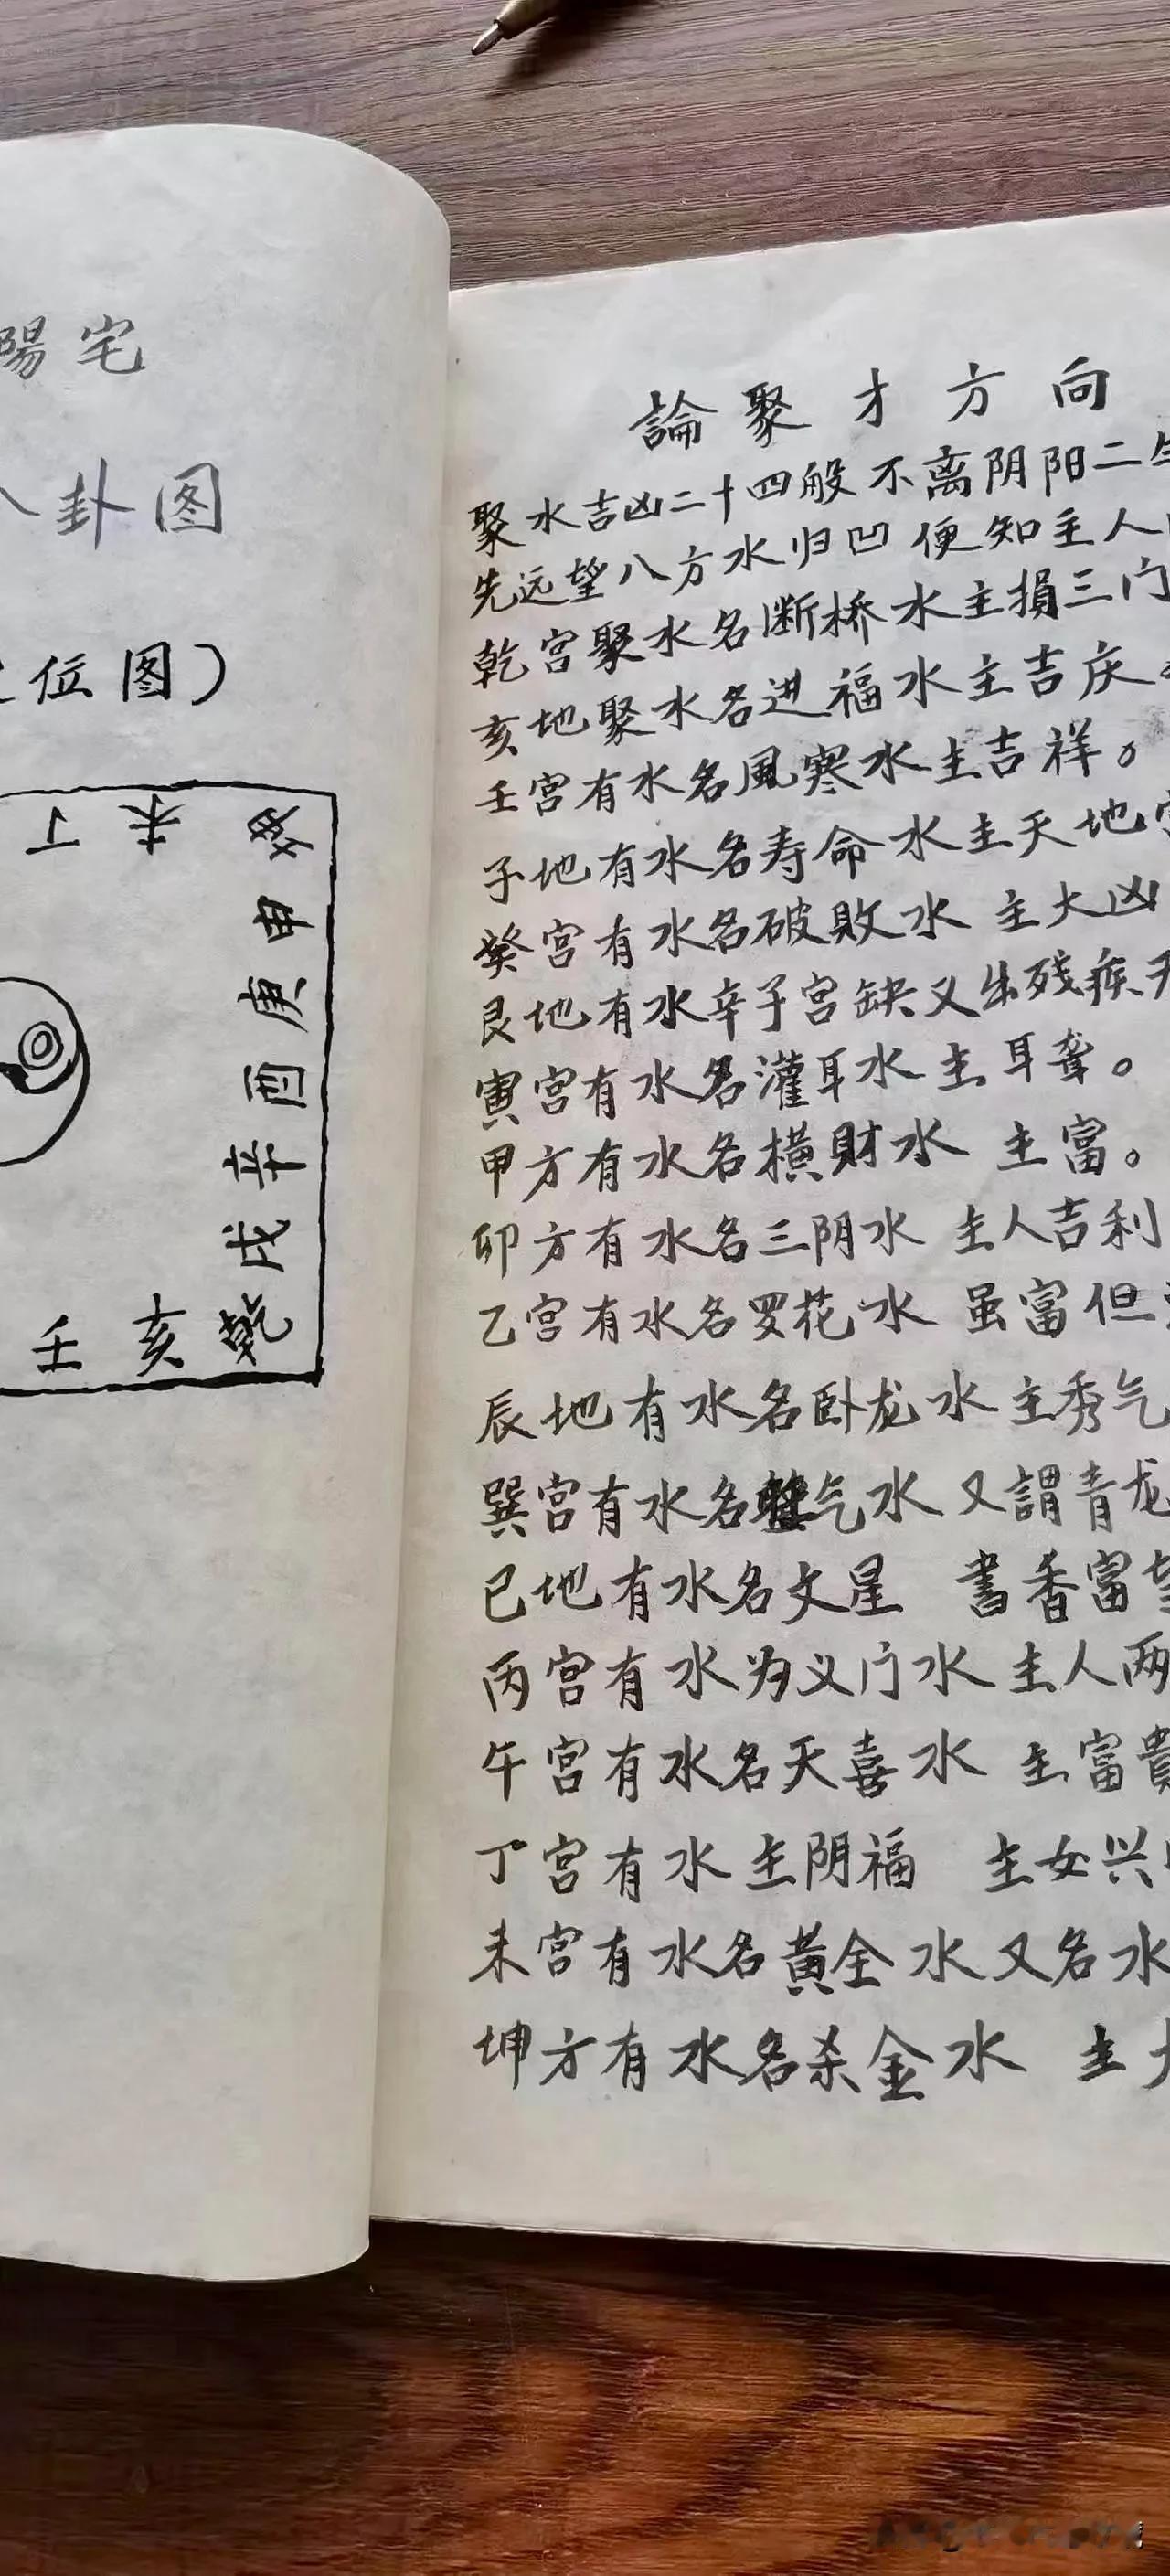 陽宅
八卦图
位图）
丁未坤
申
庚
酉
辛
戌
壬亥乾
論聚才方向
聚水吉凶二十四般不离阴阳二
先远望八方水归凹便知主人
乾宫聚水名断桥水主損三门
亥地聚水名进福水主吉庆。
壬宫有水名風寒水主吉祥。
子地有水名寿命水主天地
癸宫有水名破敗水 主大凶
艮地有水辛子宫缺又出残疾
寅宫有水名灌耳水主耳聋。
甲方有水名横財水 主富。
卯方有水名三阴水 主人吉利
乙宫有水名罗花水 虽富但
辰地有水名卧龙水主秀气
巽宫有水名气水又謂青龙
巳地有水名文星 書香富
丙宫有水为义门水主人两
午宫有水名天喜水 主富貴
丁宫有水主阴福 主女兴
未宫有水名黄全水又名水
坤方有水名杀金水 主